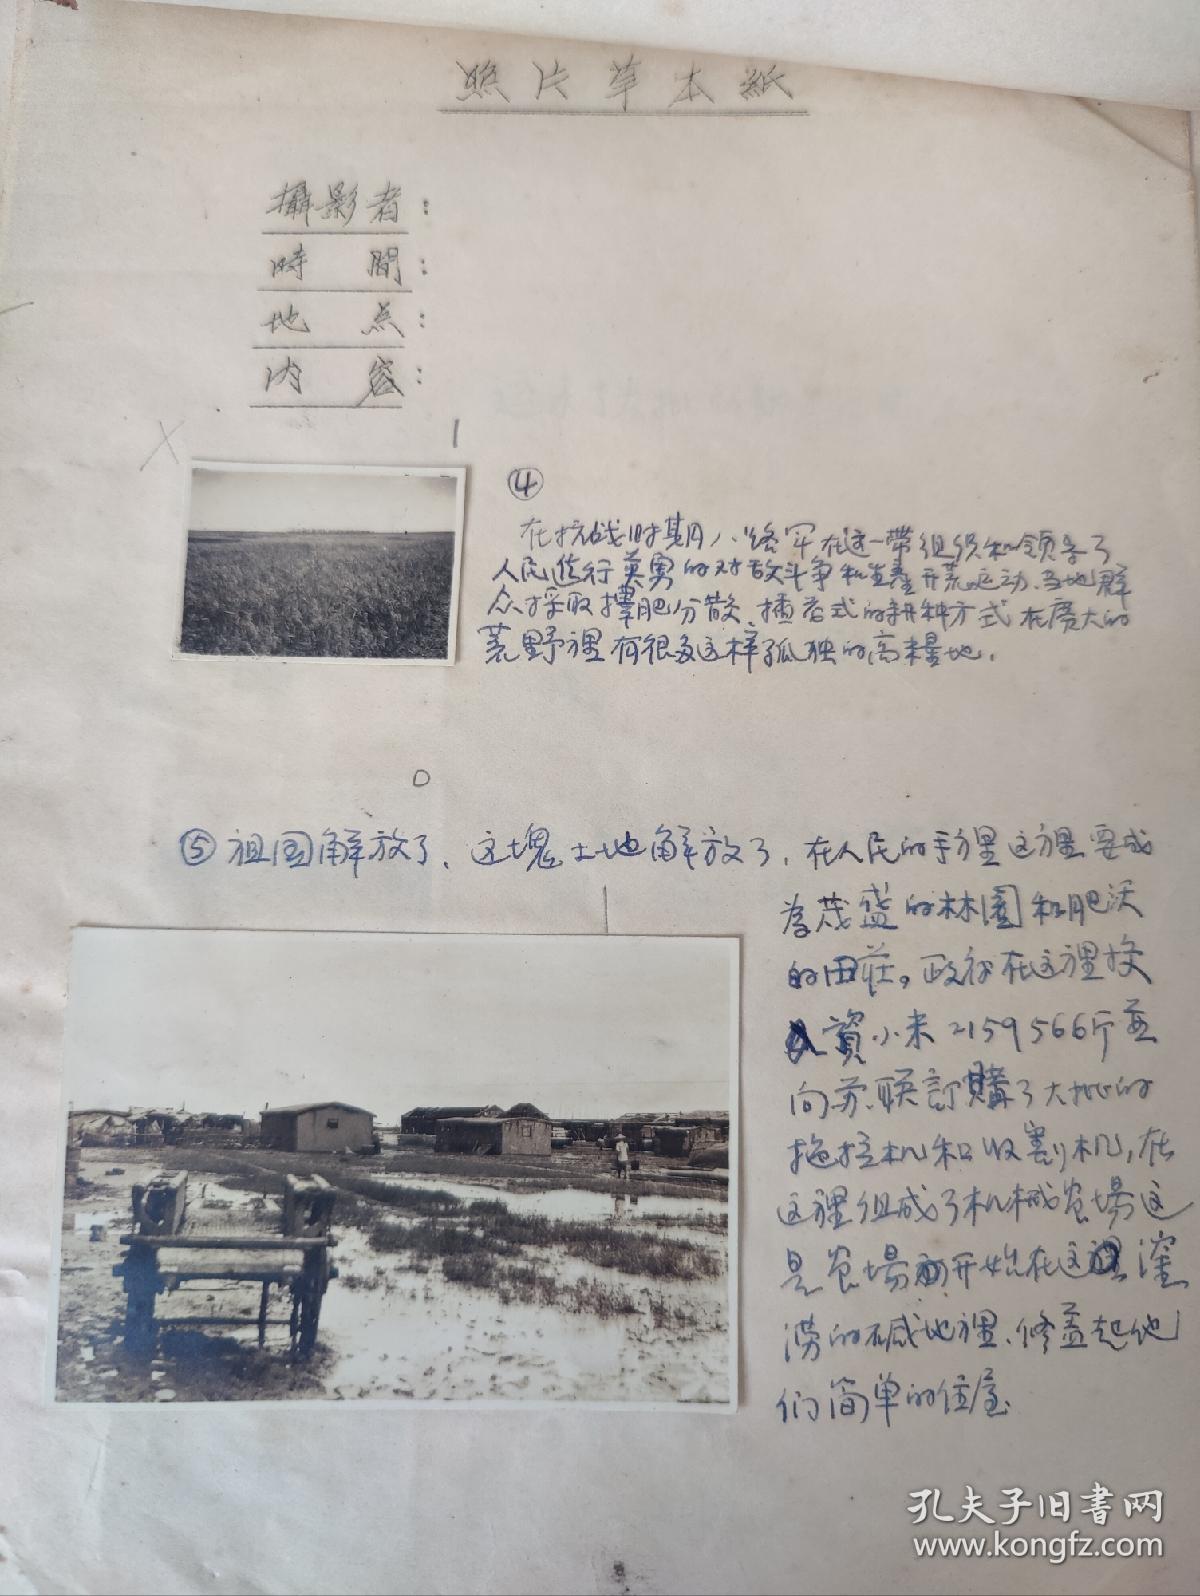 照片草本紙
攝影者：
時間：
地点：
内容：
④
在抗战时期八路军在这一带组织和领导了
人民进行英勇的对敌斗争和生產开荒运动.当地群
众採取撂肥分散、插花式的耕种方式在廣大的
荒野裡有很多这样孤独的高粱地.
⑤祖国解放了、这塊土地解放了,在人民的手裡这裡要成
为茂盛的林園和肥沃
的田莊。政府在这裡投
資小米2159566斤並
向苏联訂購了大批的
拖拉机和收割机,在
这裡组成了机械農場这
是農場开始在这裡窪
涝的碱地裡、修盖起他
们简单的住屋.
孔夫子旧书网
www.kongfz.com